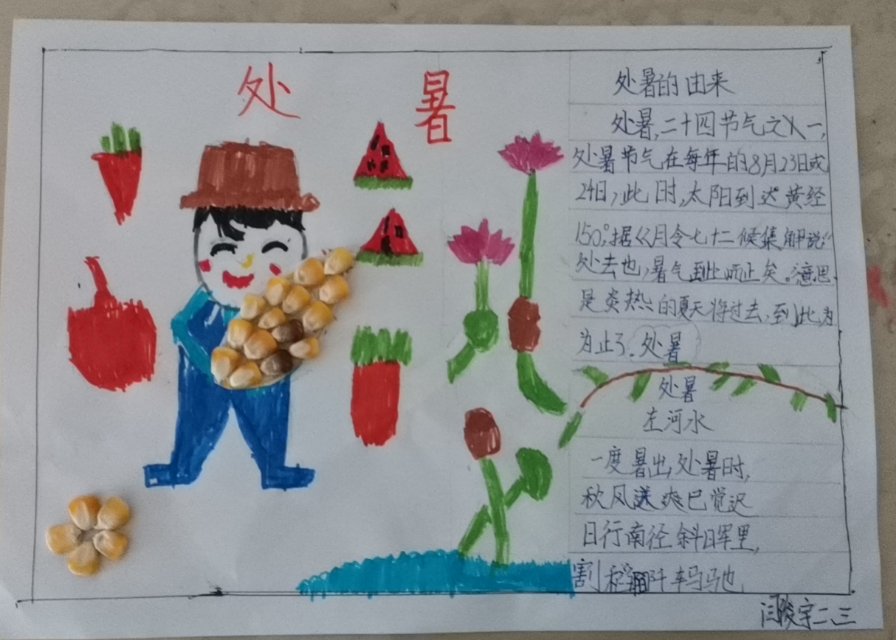 处暑
处暑的由来
处暑,二十四节气之一,
处暑节气在每年的8月23日或
24日,此时,太阳到达黄经
150°。据《月令七十二候集解说》
处去也,暑气到此而止矣。意思
是炎热的夏天将过去,到此为
为止了。处暑
处暑
左河水
一度暑出处暑时,
秋风送爽已觉迟
日行南径斜晖里,
割稻 阡 马也
二、三